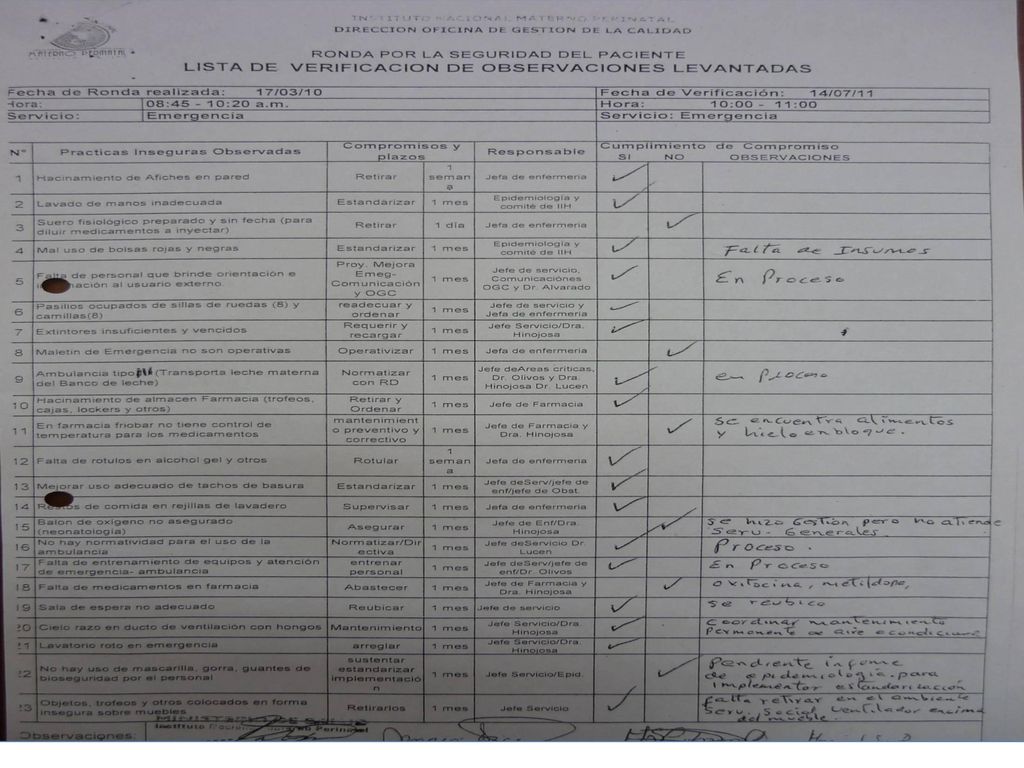 INSTITUTO NACIONAL MATERNO PERINATAL
DIRECCION OFICINA DE GESTION DE LA CALIDAD
RONDA POR LA SEGURIDAD DEL PACIENTE
LISTA DE VERIFICACION DE OBSERVACIONES LEVANTADAS
Fecha de Ronda realizada: 17/03/10 Fecha de Verificación: 14/07/11
Hora: 08:45 - 10:20 a.m. Hora: 10:00 - 11:00
Servicio: Emergencia Servicio: Emergencia
N° Practicas Inseguras Observadas Compromisos y plazos Responsable Cumplimiento de Compromiso
SI NO OBSERVACIONES
1 Hacinamiento de Afiches en pared Retirar 1 semana Jefa de enfermeria ✓
2 Lavado de manos inadecuada Estandarizar 1 mes Epidemiología y comité de IIH ✓
3 Suero fisiológico preparado y sin fecha (para diluir medicamentos a inyectar) Retirar 1 día Jefa de enfermeria ✓
4 Mal uso de bolsas rojas y negras Estandarizar 1 mes Epidemiología y comité de IIH ✓ Falta de Insumos
5 Falta de personal que brinde orientación e información al usuario externo. Proy. Mejora Emeg-Comunicación y OGC 1 mes Jefe de servicio, Comunicaciónes OGC y Dr. Alvarado ✓ En Proceso
6 Pasillos ocupados de sillas de ruedas (5) y camillas(8) readecuar y ordenar 1 mes Jefe de servicio y Jefa de enfermeria ✓
7 Extintores insuficientes y vencidos Requerir y recargar 1 mes Jefe Servicio/Dra. Hinojosa ✓
8 Maletin de Emergencia no son operativas Operativizar 1 mes Jefa de enfermeria ✓
9 Ambulancia tipo (Transporta leche materna del Banco de leche) Normatizar con RD 1 mes Jefe deAreas críticas, Dr. Olivos y Dra. Hinojosa Dr. Lucen ✓ en Proceso
10 Hacinamiento de almacen Farmacia (trofeos, cajas, lockers y otros) Retirar y Ordenar 1 mes Jefe de Farmacia ✓
11 En farmacia friobar no tiene control de temperatura para los medicamentos mantenimiento preventivo y correctivo 1 mes Jefe de Farmacia y Dra. Hinojosa ✓ se encuentra alimentos y hielo en bloque.
12 Falta de rotulos en alcohol gel y otros Rotular 1 semana Jefa de enfermeria ✓
13 Mejorar uso adecuado de tachos de basura Estandarizar 1 mes Jefe deServ/jefe de enf/jefe de Obst. ✓
14 Restos de comida en rejillas de lavadero Supervisar 1 mes Jefa de enfermeria ✓
15 Balon de oxígeno no asegurado (neonatología) Asegurar 1 mes Jefe de Enf/Dra. Hinojosa ✓ se hizo Gestión pero no atiende Serv. Generales
16 No hay normatividad para el uso de la ambulancia Normatizar/Directiva 1 mes Jefe deServicio Dr. Lucen ✓ Proceso.
17 Falta de entrenamiento de equipos y atención de emergencia- ambulancia entrenar personal 1 mes Jefe deServ/jefe de enf/Dr. Olivos ✓ En Proceso
18 Falta de medicamentos en farmacia Abastecer 1 mes Jefe de Farmacia y Dra. Hinojosa ✓ oxitocina, metildopa,
19 Sala de espera no adecuado Reubicar 1 mes Jefe de servicio ✓ se reubico
20 Cielo razo en ducto de ventilación con hongos Mantenimiento 1 mes Jefe Servicio/Dra. Hinojosa ✓ Coordinar mantenimiento Permanente de aire acondicionado
21 Lavatorio roto en emergencia arreglar 1 mes Jefe Servicio/Dra. Hinojosa ✓
22 No hay uso de mascarilla, gorra, guantes de bioseguridad por el personal sustentar estandarizar implementación 1 mes Jefe Servicio/Epid. ✓ Pendiente informe de epidemiologia para implementar estandarización
23 Objetos, trofeos y otros colocados en forma insegura sobre muebles Retirarlos 1 mes Jefe Servicio ✓ falta retirar en el ambiente Serv. Social ventilador encima del mueble.
Observaciones: